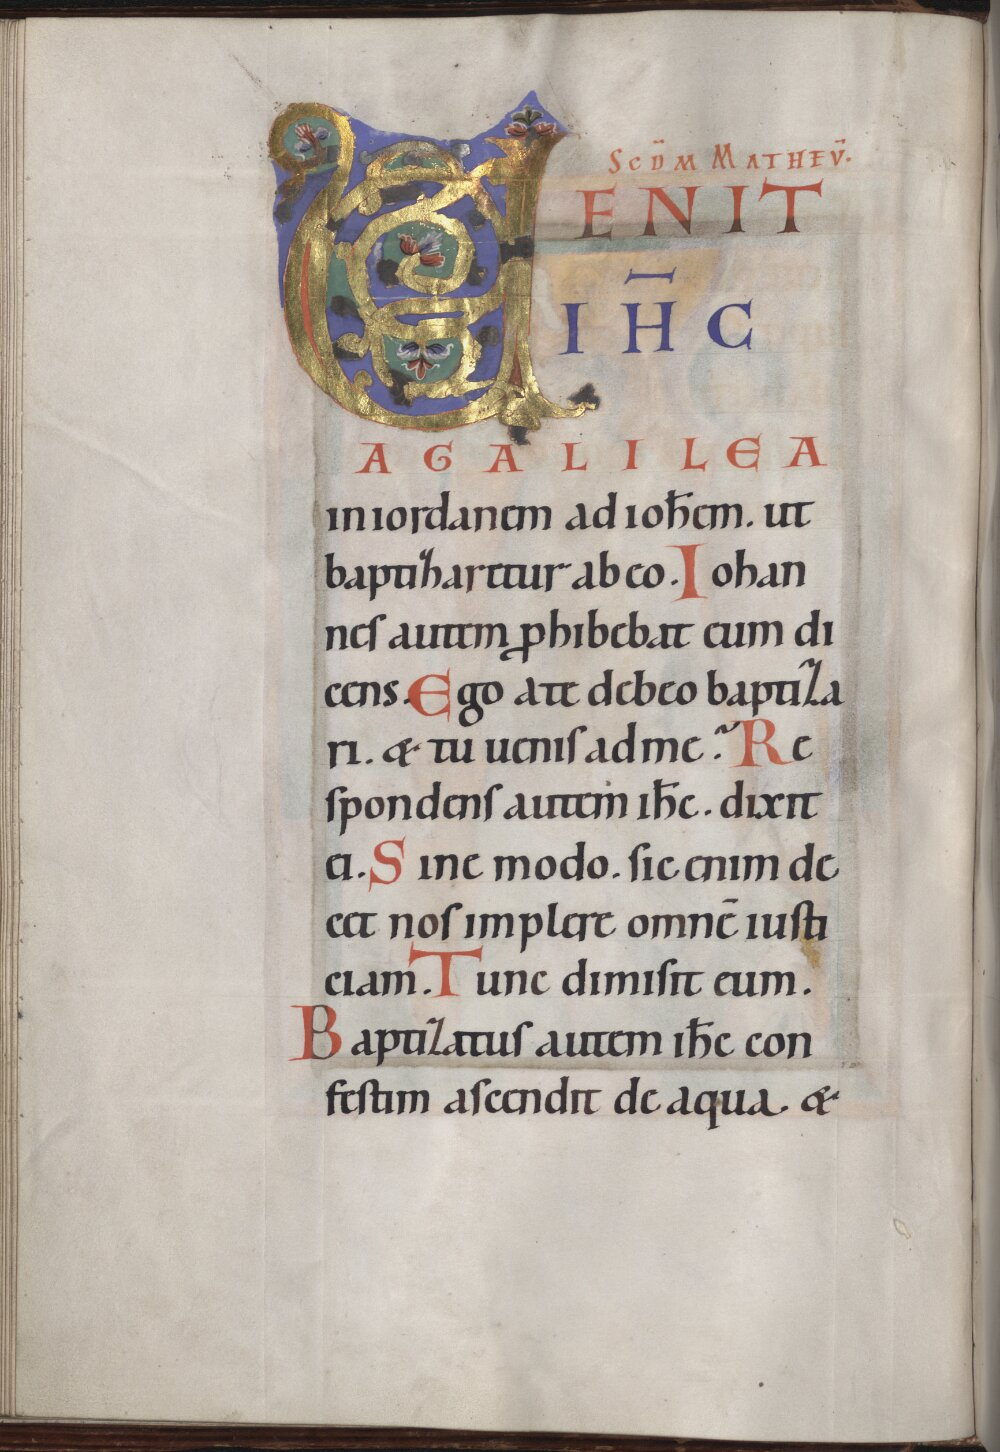 Scdm Matheu.
VENIT
IHC
A GALILEA
in iordanem ad iohem. ut
baptiharetur ab eo. Iohan
nes autem phibebat eum di
cens. Ego a te debeo baptiza
ri. & tu uenis ad me? Re
spondens autem ihc. dixit
ei. Sine modo. sic enim de
cet nos implere omnē iusti
ciam. Tunc dimisit eum.
Baptizatus autem ihc con
festim ascendit de aqua. &